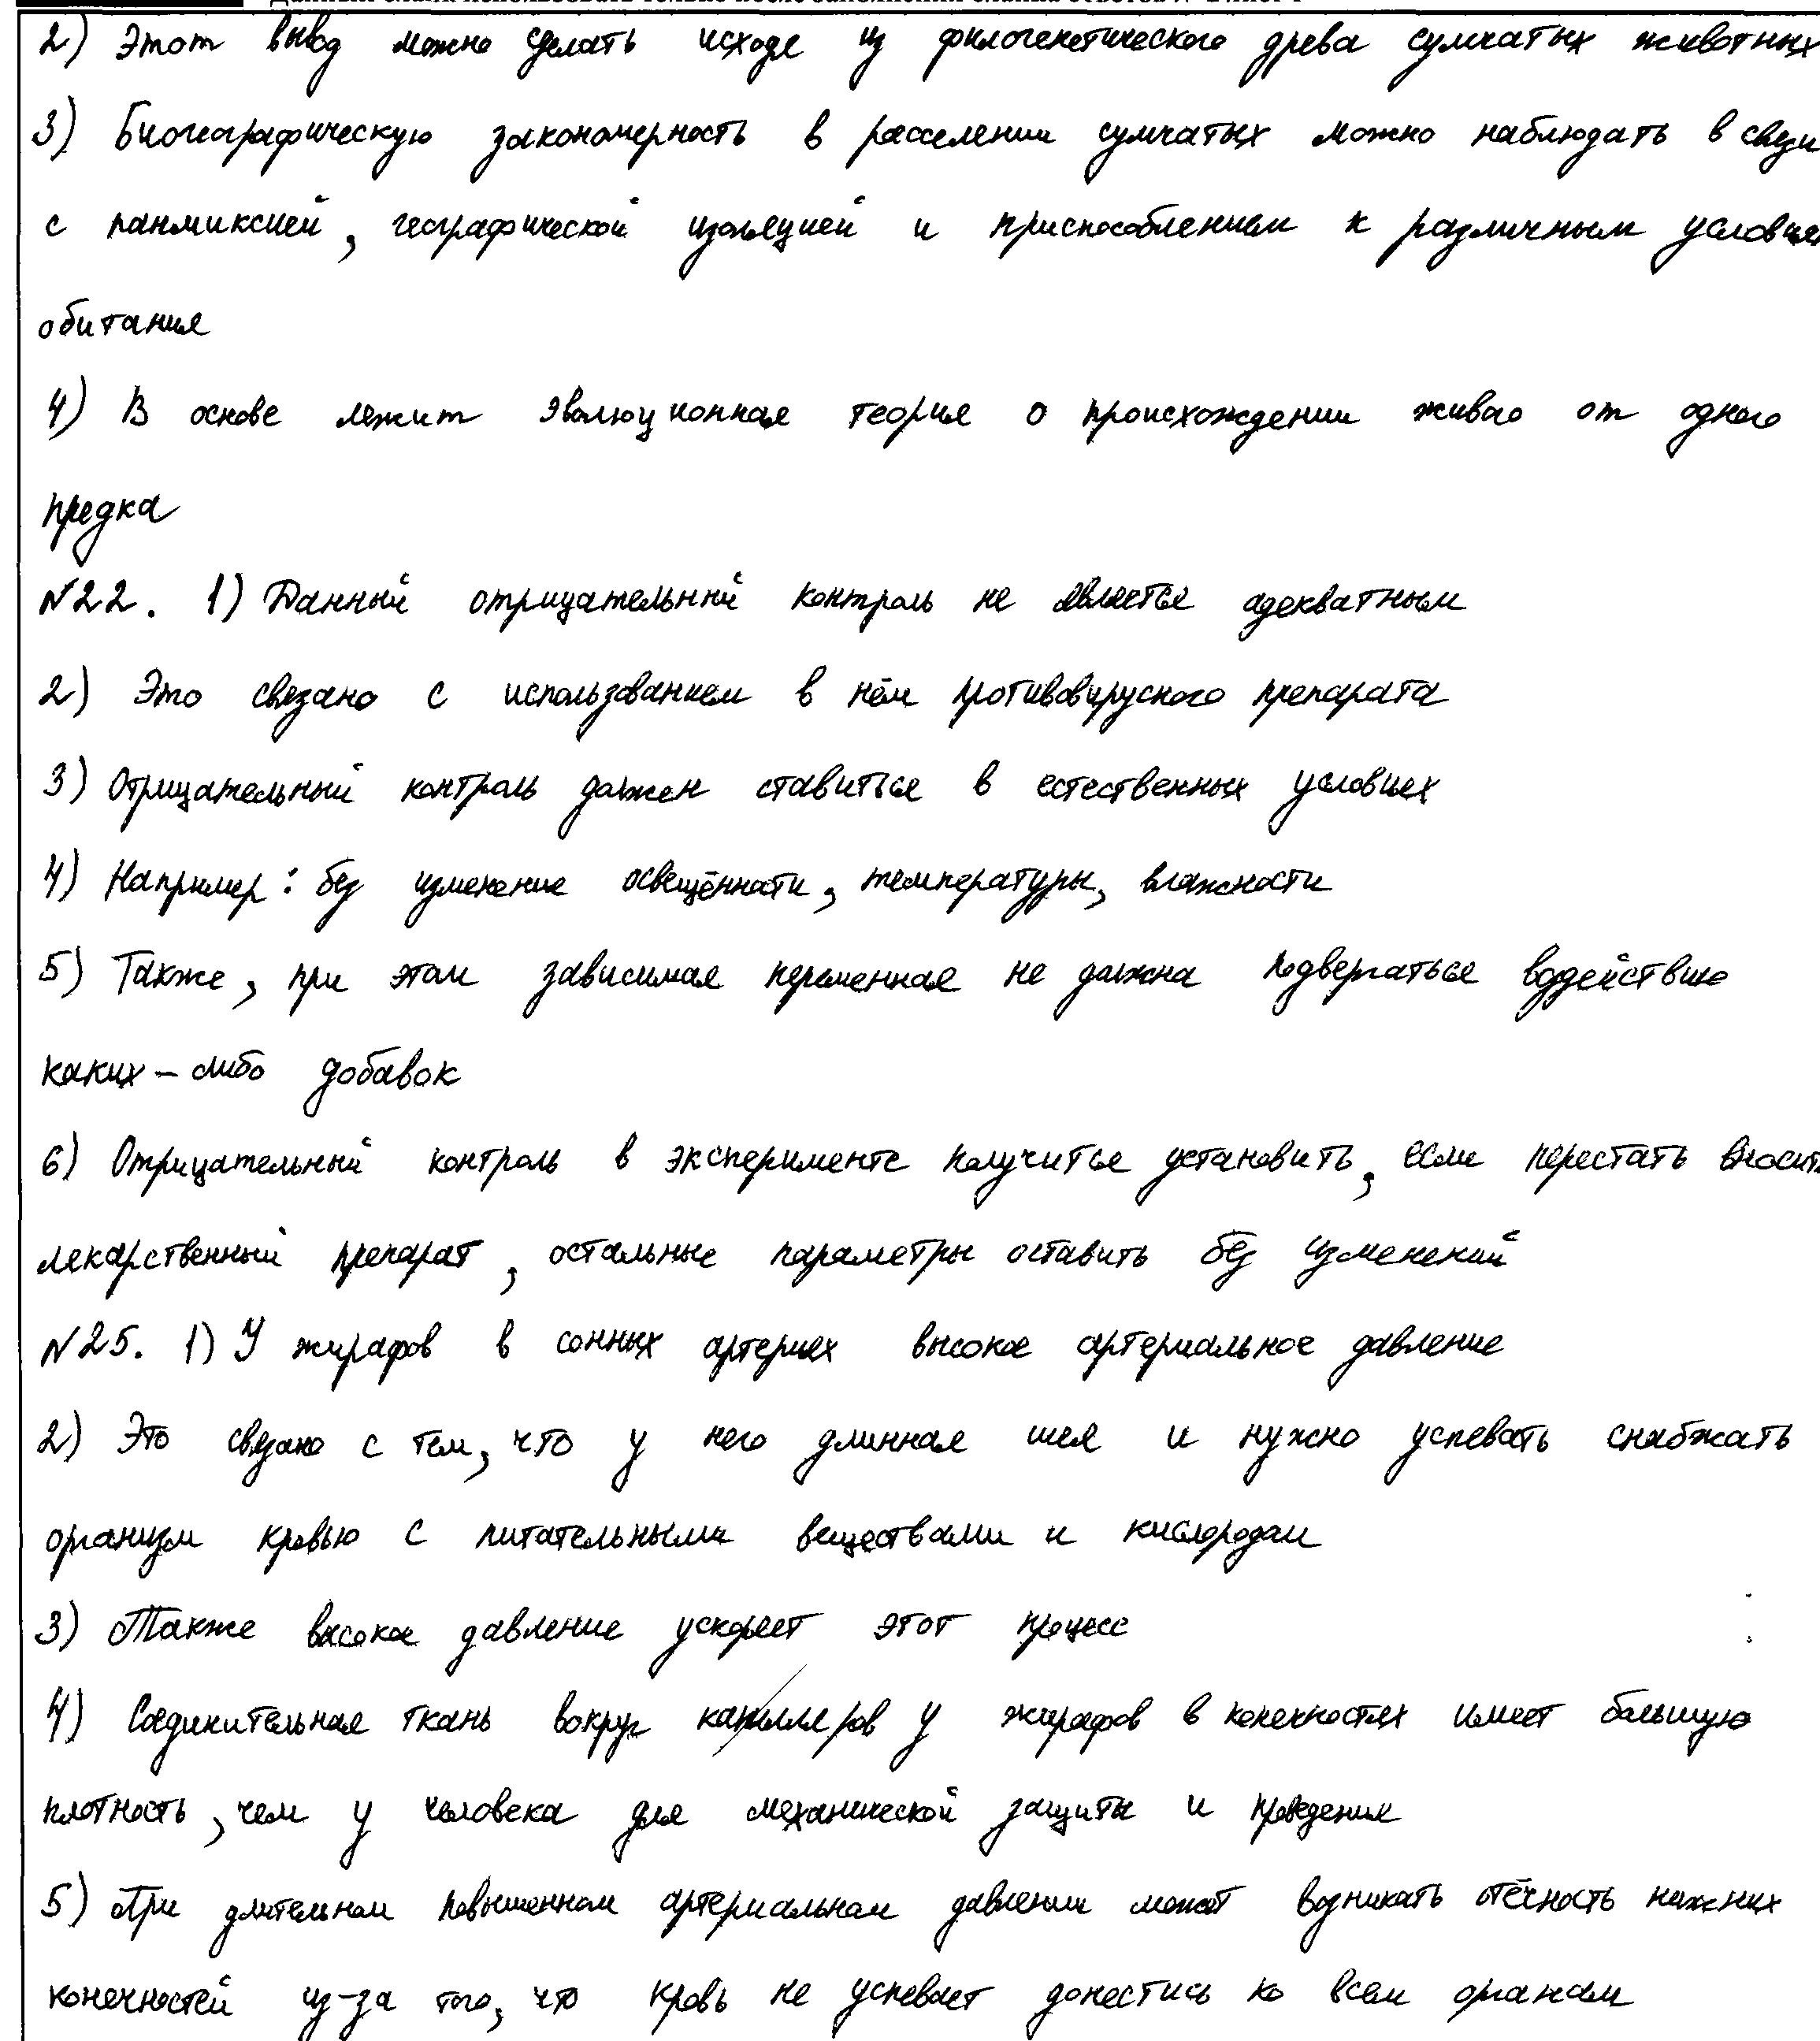 2) Этот вывод можно сделать исходя из филогенетического древа сумчатых животных
3) Биогеографическую закономерность в расселении сумчатых можно наблюдать в связи
с панмиксией, географической изоляцией и приспособлением к различным условиям
обитания
4) В основе лежит эволюционная теория о происхождении живого от одного
предка
№22. 1) Данный отрицательный контроль не является адекватным
2) Это связано с использованием в нём противовирусного препарата
3) Отрицательный контроль должен ставиться в естественных условиях
4) Например: без изменение освещённости, температуры, влажности
5) Также, при этом зависимая переменная не должна подвергаться воздействию
каких-либо добавок
6) Отрицательный контроль в эксперименте получиться установить, если перестать вносить
лекарственный препарат, остальные параметры оставить без изменений
№25. 1) У жирафов в сонных артериях высокое артериальное давление
2) Это связано с тем, что у него длинная шея и нужно успевать снабжать
организм кровью с питательными веществами и кислородом
3) Также высокое давление ускоряет этот процесс
4) Соединительная ткань вокруг капилляров у жирафов в конечностях имеет большую
плотность, чем у человека для механической защиты и проведения
5) При длительном повышенном артериальном давлении может возникать отёчность нижних
конечностей из-за того, что кровь не успевает донестись ко всем органам